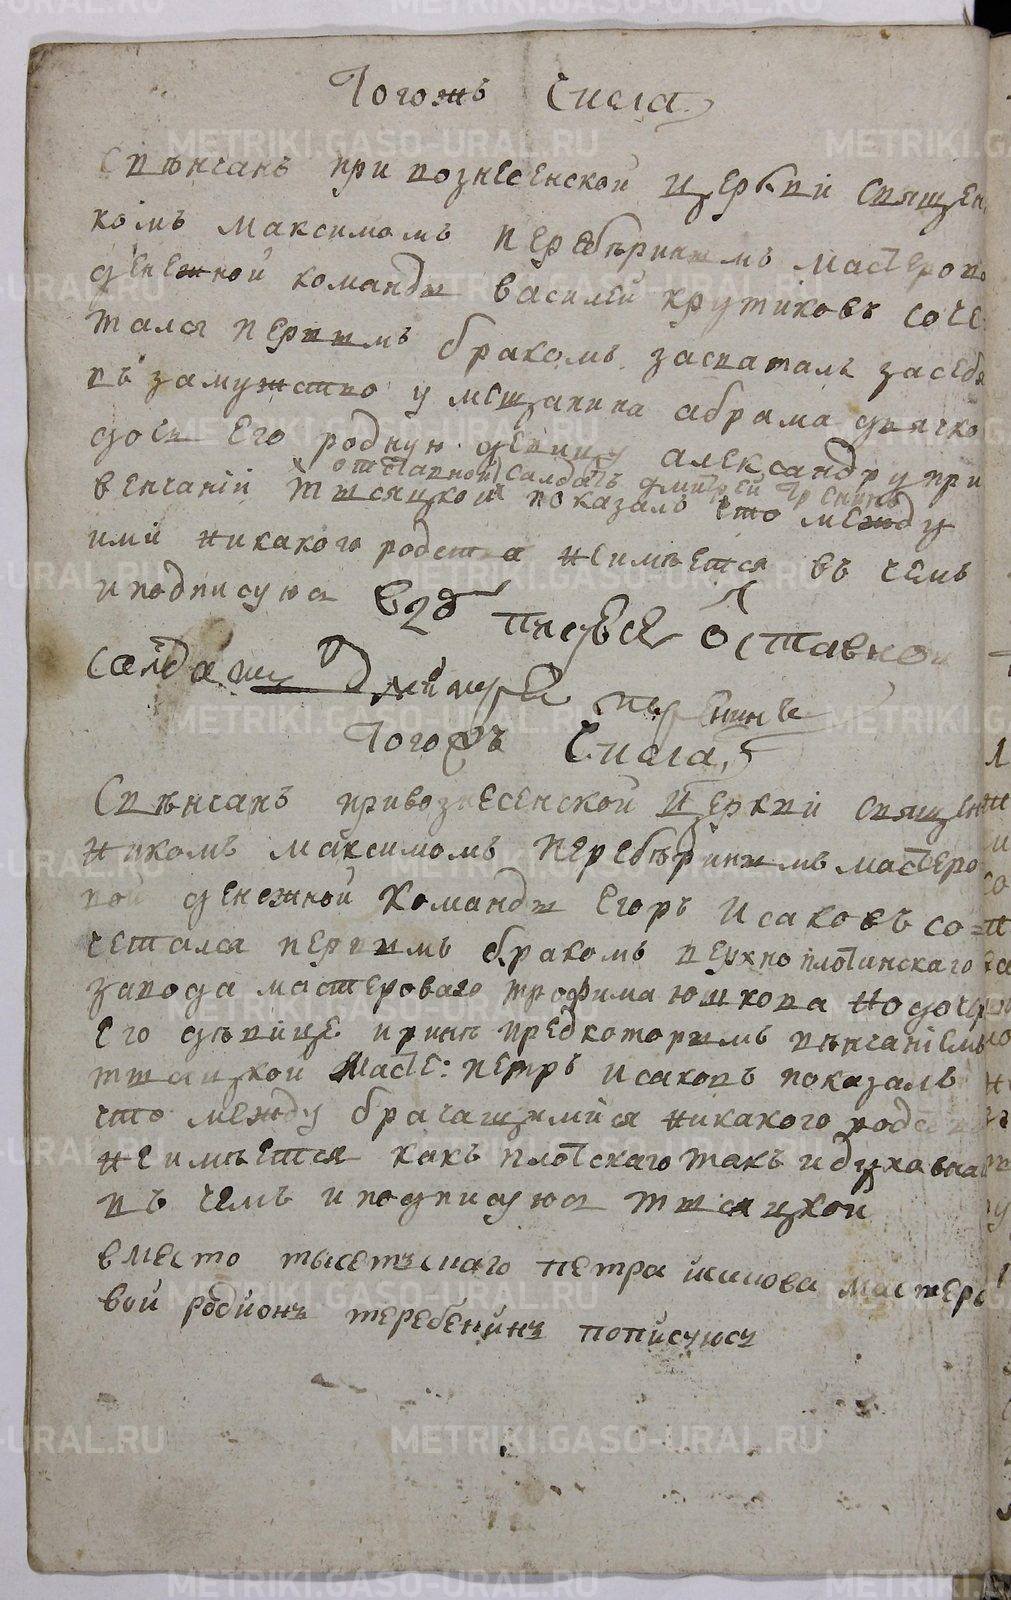 Тогожъ Числа
Свѣнчанъ при вознесенской церкви священ
комъ максимомъ перебѣринымъ мастерово
денежной команды василей крутиковъ соче
тался первымъ бракомъ засваталъ засебя
въ замужство у мещанина абрама дьячко
его родную девицу александру при
отставной салдатъ дмитрей
венчаній тысяцкой показалъ что между
ими никакого родства неимѣется въ чемъ
иподписуюся
оставной
салдатъ Дмитрей
Тогожъ Числа
Свѣнчанъ привознесенской церкви священ
никомъ максимомъ перебѣринымъ мастеро
вой денежной команды егоръ исаковъ со=
четался первымъ бракомъ верхно плотинскаго
завода мастероваго трофима юшкова
его дѣвице иринѣ предкоторымъ вѣнчаніемъ
тысяцкой масте: петръ исаковъ показалъ
что между брачащимися никакого родства
неимѣется какъ плотскаго такъ идуховна
въ чемъ иподписуюся тысяцкой
вместо петра мастеро
вой родионъ теребенинъ пописуюсъ
METRIKI.GASO-URAL.RU